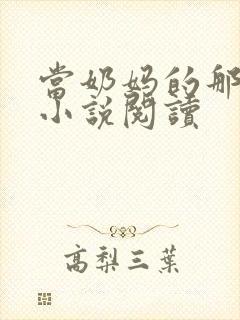 當奶妈的那
小説閱讀
高梨三葉